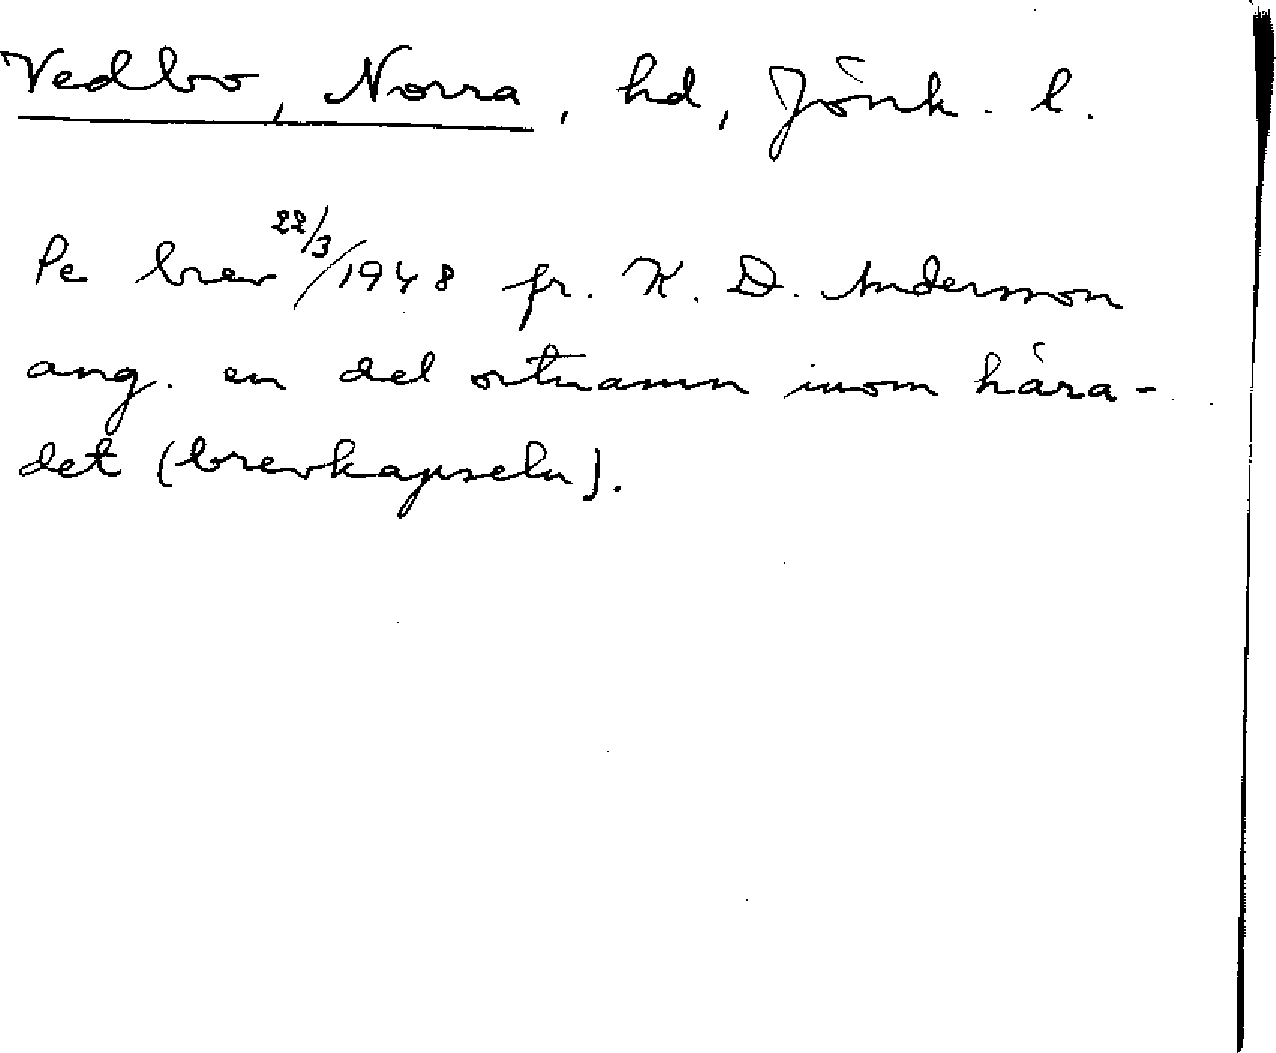 Vedbo, Norra, hd, Jönk. l.
Se brev 22/3/1948 fr. K. D. Andersson
ang. en del ortnamn inom hära-
det (brevkapseln).